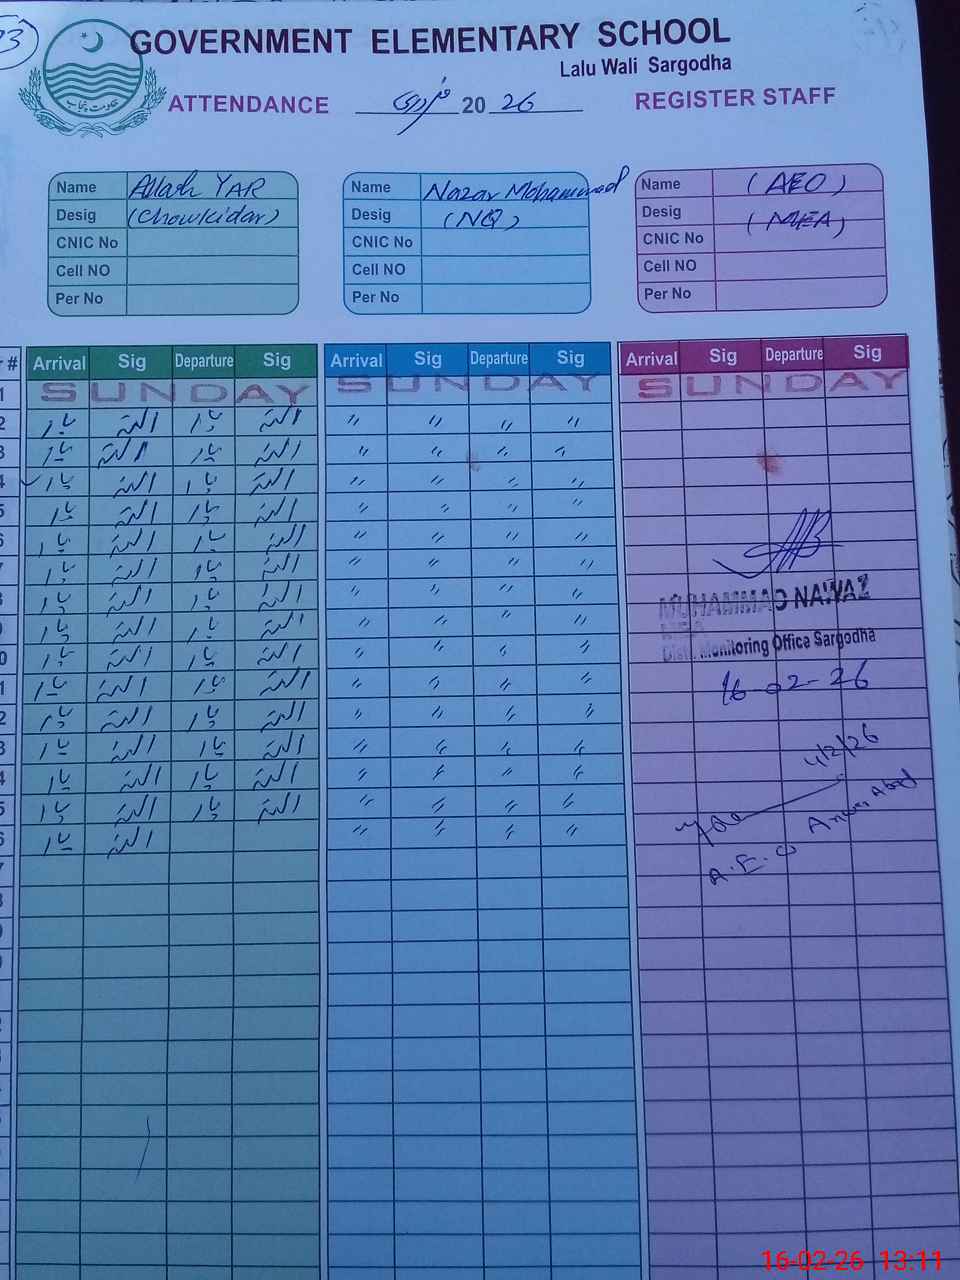 GOVERNMENT ELEMENTARY SCHOOL
Lalu Wali Sargodha
حکومت پنجاب
ATTENDANCE فروری 2026 REGISTER STAFF
Name Allah YAR
Desig (Chowkidar)
CNIC No
Cell NO
Per No
Name Nazar Mohammad
Desig (NQ)
CNIC No
Cell NO
Per No
Name (AEO)
Desig (MEA)
CNIC No
Cell NO
Per No
Arrival Sig Departure Sig Arrival Sig Departure Sig Arrival Sig Departure Sig
1 SUNDAY SUNDAY SUNDAY
2 یار اللہ یار اللہ " " " "
3 یار اللہ یار اللہ " " " "
4 یار اللہ یار اللہ " " " "
5 یار اللہ یار اللہ " " " "
6 یار اللہ یار اللہ " " " "
یار اللہ یار اللہ " " " "
یار اللہ یار اللہ " " " "
یار اللہ یار اللہ " " " "
0 یار اللہ یار اللہ " " " "
1 یار اللہ یار اللہ " " " "
2 یار اللہ یار اللہ " " " "
3 یار اللہ یار اللہ " " " "
4 یار اللہ یار اللہ " " " "
5 یار اللہ یار اللہ " " " "
6 یار اللہ " " " "
MUHAMMAD NAWAZ
MEA
Distt. Monitoring Office Sargodha
16-02-26
4/2/26
A.E.O
16-02-26 13:11